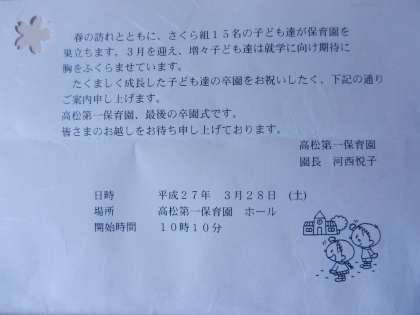 春の訪れとともに、さくら組１５名の子ども達が保育園を
巣立ちます。３月を迎え、増々子ども達は就学に向け期待に
胸をふくらませています。
たくましく成長した子ども達の卒園をお祝いしたく、下記の通り
ご案内申し上げます。
高松第一保育園、最後の卒園式です。
皆さまのお越しをお待ち申し上げております。
高松第一保育園
園長　河西悦子
日時　平成２７年　３月２８日　(土)
場所　高松第一保育園　ホール
開始時間　１０時１０分